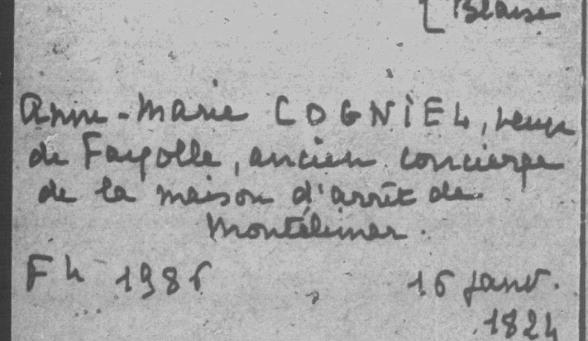 [ Blaise
Anne-Marie COGNIEL, veuve
de Fayolle, ancien concierge
de la maison d'arrêt de
Montélimar.
F4 1986 16 janv.
1824